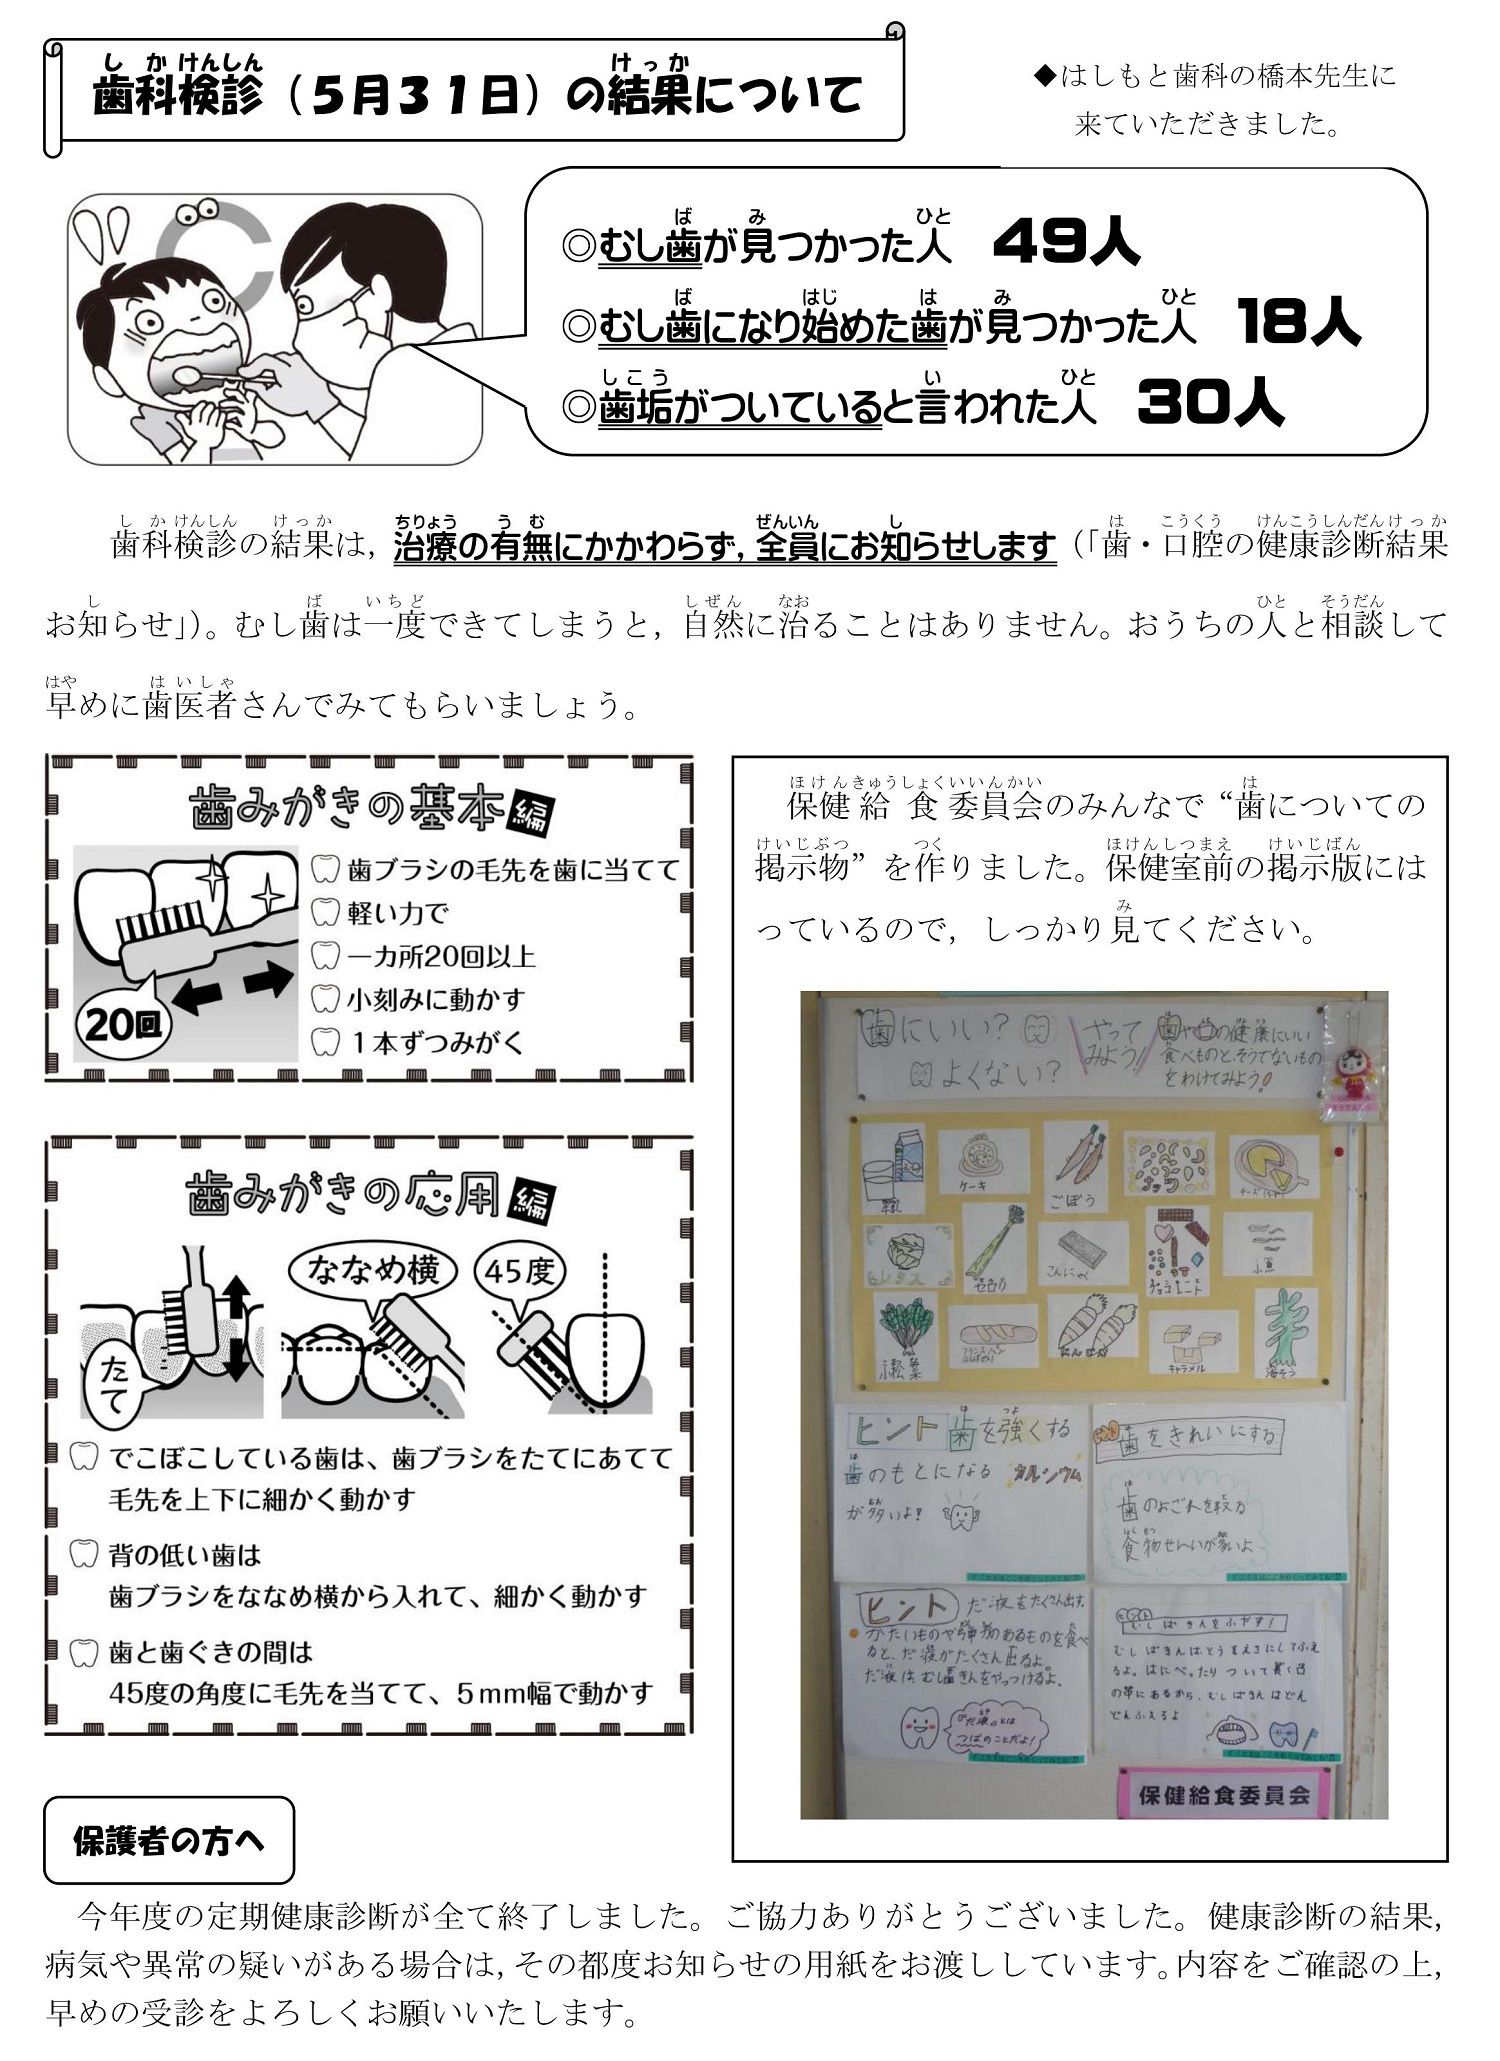 歯科検診（5月31日）の結果について
◆はしもと歯科の橋本先生に
来ていただきました。
◎むし歯が見つかった人　49人
◎むし歯になり始めた歯が見つかった人　18人
◎歯垢がついていると言われた人　30人
歯科検診の結果は，治療の有無にかかわらず，全員にお知らせします（「歯・口腔の健康診断結果
お知らせ」）。むし歯は一度できてしまうと，自然に治ることはありません。おうちの人と相談して
早めに歯医者さんでみてもらいましょう。
歯みがきの基本編
歯ブラシの毛先を歯に当てて
軽い力で
一カ所20回以上
小刻みに動かす
1本ずつみがく
20回
歯みがきの応用編
たて
ななめ横
45度
でこぼこしている歯は、歯ブラシをたてにあてて
毛先を上下に細かく動かす
背の低い歯は
歯ブラシをななめ横から入れて、細かく動かす
歯と歯ぐきの間は
45度の角度に毛先を当てて、5mm幅で動かす
保健給食委員会のみんなで“歯についての
掲示物”を作りました。保健室前の掲示版には
っているので，しっかり見てください。
歯にいい？
よくない？
やって
みよう！
歯や口の健康にいい
食べものと、そうでないもの
をわけてみよう！
ケーキ
ごぼう
ナッツ
レタス
セロリ
こんにゃく
チョコレート
小魚
小松菜
にんじん
キャラメル
海そう
ヒント 歯を強くする
歯のもとになる カルシウム
が多いよ！
歯をきれいにする
歯のよごれを取る
食物せんいが多いよ
ヒント だ液をたくさん出す。
かたいものや弾力のあるものを食べ
ると、だ液がたくさん出るよ。
だ液は、むし歯きんをやっつけるよ。
だ液とは
つばのことだよ！
ヒント
むしばきんをふやす！
保健給食委員会
保護者の方へ
今年度の定期健康診断が全て終了しました。ご協力ありがとうございました。健康診断の結果，
病気や異常の疑いがある場合は，その都度お知らせの用紙をお渡ししています。内容をご確認の上，
早めの受診をよろしくお願いいたします。